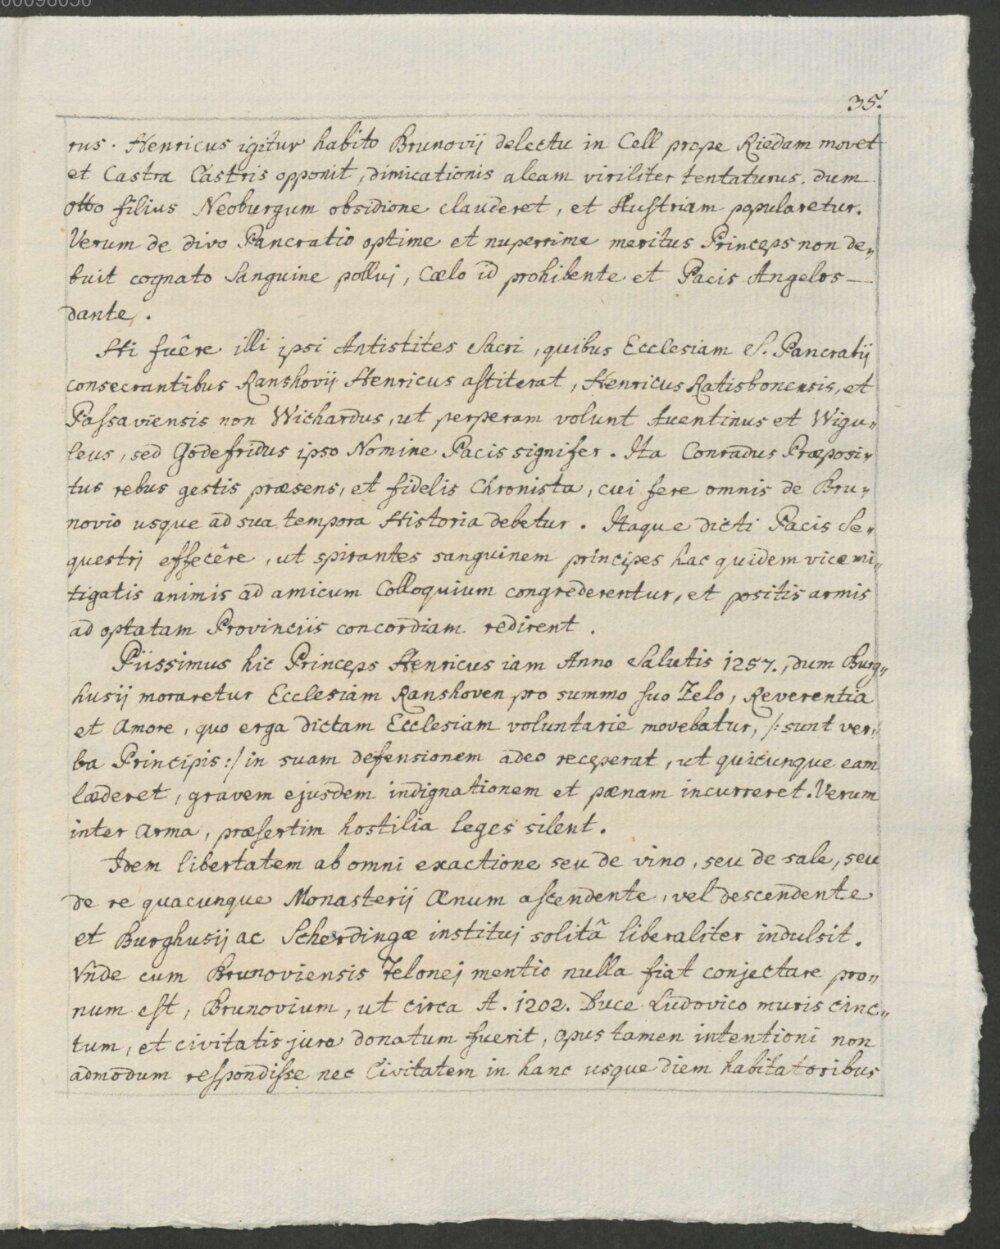 00096050
35.
rus. Henricus igitur habito Brunovij delectu in Cell prope Riedam movet
et Castra Castris opponit, dimicationis aleam viriliter tentaturus. dum
Otto filius Neoburgum obsidione clauderet, et Austriam popularetur.
Verum de divo Pancratio optime et nuperrime meritus Princeps non de„
buit cognato Sanguine pollui, Cælo id prohibente et Pacis Angelos —
dante.
Hi fuêre illi ipsi Antistites Sacri, quibus Ecclesiam S. Pancratij
consecrantibus Ranshovij Henricus astiterat, Henricus Ratisbonensis, et
Passaviensis non Wichardus, ut perperam volunt Aventinus et Wigu„
leus, sed Godefridus ipso Nomine Pacis signifer. Ita Conradus Præposi„
tus rebus gestis præsens, et fidelis Chronista, cui fere omnis de Bru„
novio usque ad sua tempora Historia debetur. Itaque dicti Pacis Se„
questri effecêre, ut spirantes sanguinem principes hac quidem vice mi„
tigatis animis ad amicum Colloquium congrederentur, et positis armis
ad optatam Provinciis concordiam redirent.
Piissimus hic Princeps Henricus iam Anno Salutis 1257., dum Burg„
husij moraretur Ecclesiam Ranshoven pro summo suo Zelo, Reverentia
et Amore, quo erga dictam Ecclesiam voluntarie movebatur, /: sunt ver„
ba Principis :/ in suam defensionem adeo receperat, ut quicunque eam
læderet, gravem ejusdem indignationem et pænam incurreret. Verum
inter Arma, præsertim hostilia leges silent.
Idem libertatem ab omni exactione seu de vino, seu de sale, seu
de re quacunque Monasterij Ænum ascendente, vel descendente
et Burghusij ac Scherdingæ institui solitâ liberaliter indulsit.
Vnde cum Brunoviensis Telonej mentio nulla fiat conjectare pro„
num est, Brunovium, ut circa A. 1202. Duce Ludovico muris cinc„
tum, et civitatis jure donatum fuerit, opus tamen intentioni non
admodum respondisse nec Civitatem in hanc usque diem habitatoribus